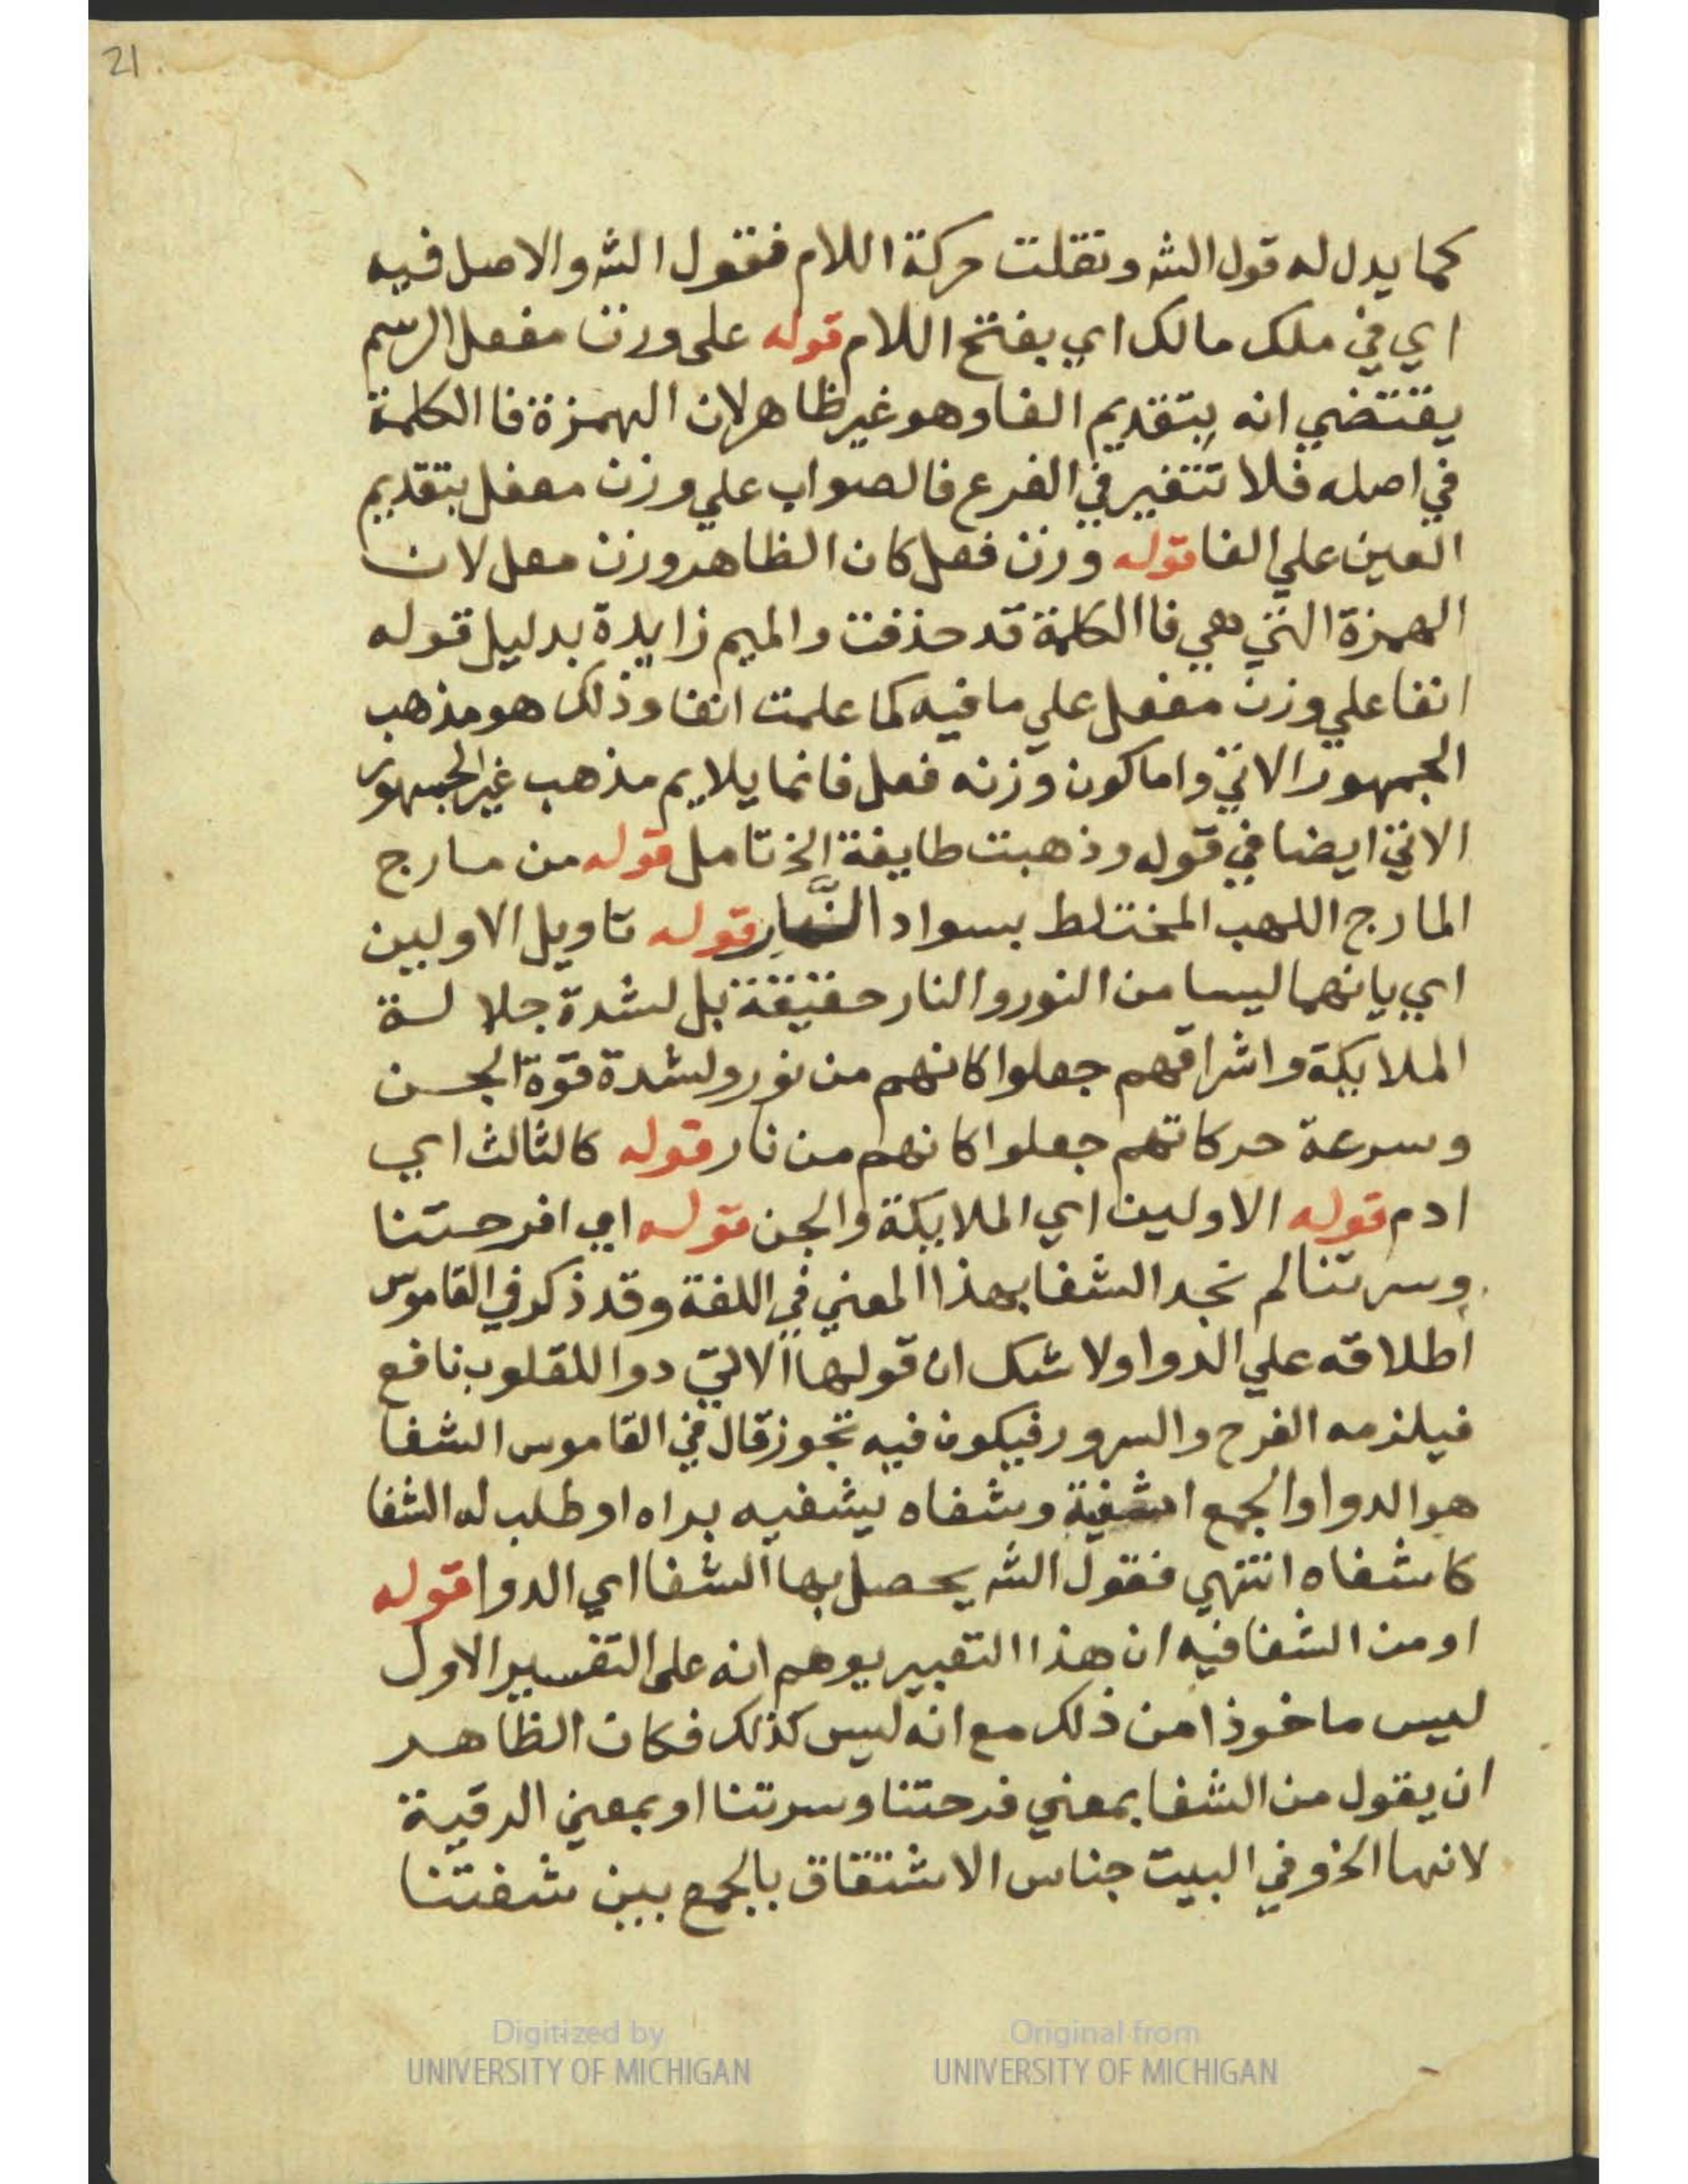 21
كما يدل له قول الشه ونقلت حركة اللام فقول الشه والاصل فيه
اي في ملك مالك اي بفتح اللام قوله على وزن مفعل الرسم
يقتضي انه بتقديم الفا وهو غير ظاهر لان الهمزة فا الكلمة
في اصله فلا تتغير في الفرع فالصواب علي وزن معفل بتقديم
العين علي الفا قوله وزن فعل كان الظاهر وزن معل لان
الهمزة التي هي فا الكلمة قد حذفت والميم زايدة بدليل قوله
انفا علي وزن مفعل علي ما فيه كما علمت انفا وذلك هو مذهب
الجمهور الاتي واما كون وزنه فعل فانما يلايم مذهب غير الجمهور
الاتي ايضا في قوله وذهبت طايفة الخ تامل قوله من مارج
المارج اللهب المختلط بسواد النَّار قوله تاويل الاولين
اي بانهما ليسا من النور والنار حقيقة بل لشدة جلالة
الملايكة واشراقهم جعلوا كانهم من نور ولشدة قوة الجن
وسرعة حركاتهم جعلوا كانهم من نار قوله كالثالث اي
ادم قوله الاولين اي الملايكة والجن قوله اي افرحتنا
وسرتنا لم نجد الشفا بهذا المعني في اللغة وقد ذكر في القاموس
اطلاقه علي الدوا ولا شك ان قولها الاتي دوا للقلوب نافع
فيلزمه الفرح والسرور فيكون فيه تجوز قال في القاموس الشفا
هو الدوا والجمع اشفية وشفاه يشفيه براه او طلب له الشفا
كاشفاه انتهي فقول الشه يحصل بها الشفا اي الدوا قوله
او من الشفا فيه ان هذا التعبير يوهم انه على التفسير الاول
ليس ماخوذا من ذلك مع انه ليس كذلك فكان الظاهر
ان يقول من الشفا بمعني فرحتنا وسرتنا او بمعني الرقية
لانها الخ وفي البيت جناس الاشتقاق بالجمع بين شفتنا
Digitized by
UNIVERSITY OF MICHIGAN
Original from
UNIVERSITY OF MICHIGAN